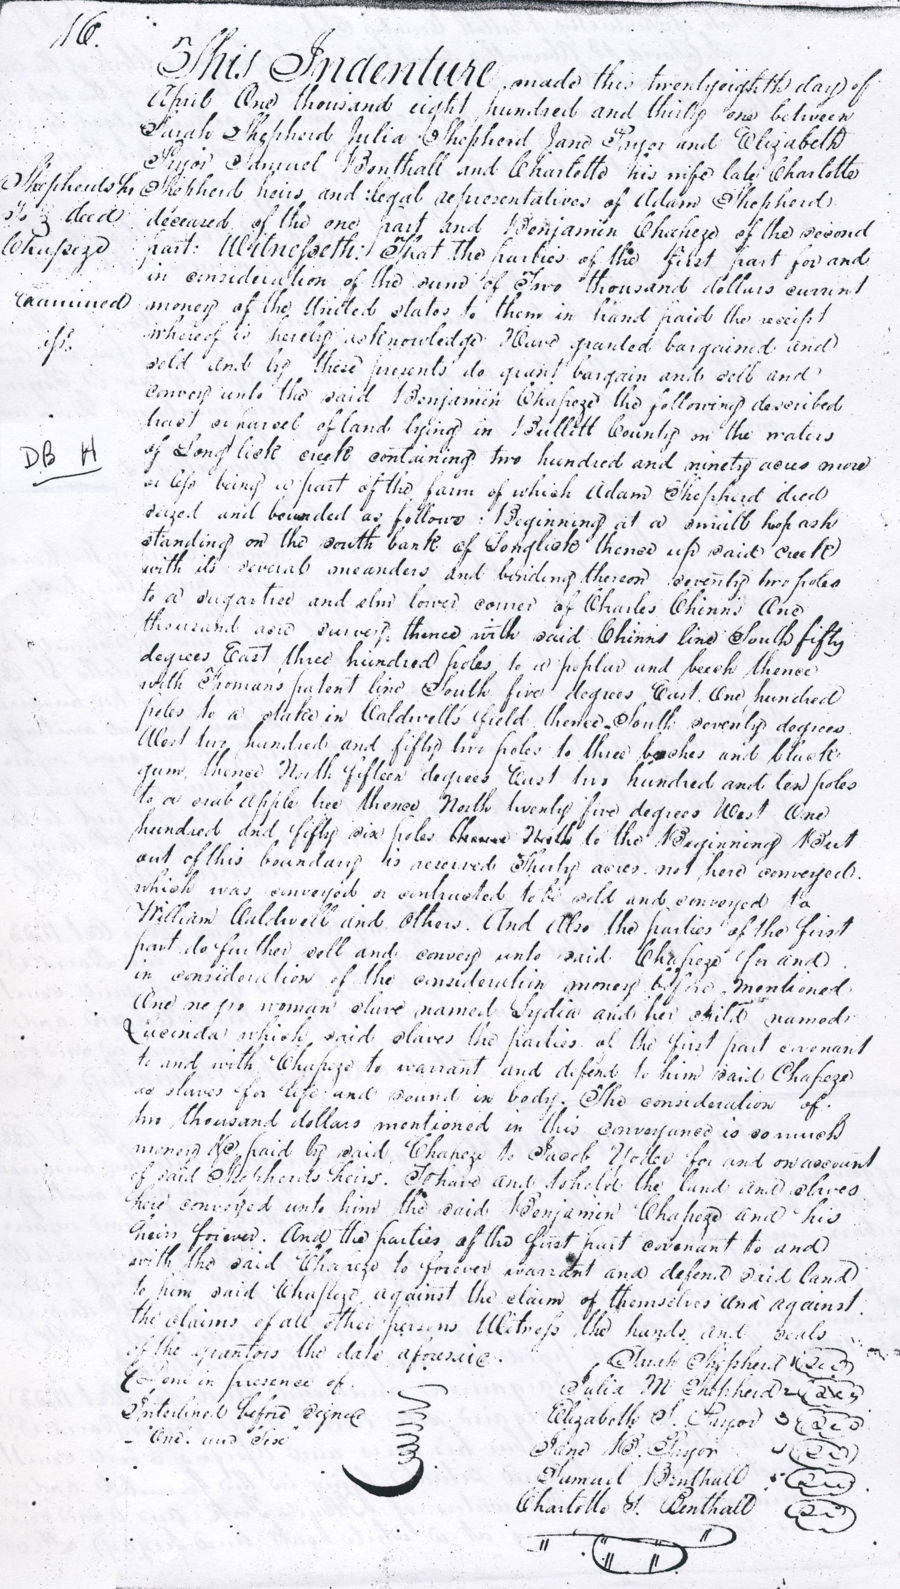 16.
This Indenture made this twentyeighth day of
April One thousand eight hundred and thirty one between
Sarah Shepherd Julia Shepherd Jane Pryor and Elizabeth
Pryor Samuel Benthall and Charlotte his wife late Charlotte
Shepherd heirs and legal representatives of Adam Shepherd
deceased of the one part and Benjamin Chapeze of the second
part: Witnesseth: That the parties of the first part for and
in consideration of the sum of Two thousand dollars current
money of the United states to them in hand paid the receipt
whereof is hereby acknowledge Have granted bargained and
sold and by these presents do grant bargain and sell and
convey unto the said Benjamin Chapeze the following described
tract or parcel of land lying in Bullitt County on the waters
of Long lick creek containing two hundred and ninety acres more
or less being a part of the farm of which Adam Shepherd died
seized and bounded as follows: Beginning at a small hop ash
standing on the south bank of Longlick thence up said creek
with its several meanders and binding thereon seventy two poles
to a sugartree and elm lower corner of Charles Chinns One
thousand acre survey, thence with said Chinns line South fifty
degrees East three hundred poles to a poplar and beech thence
with Fromans patent line South five degrees East One hundred
poles to a stake in Caldwell's field thence South seventy degrees
West two hundred and fifty two poles to three beches and black
gum, thence North fifteen degrees East two hundred and ten poles
to a crab apple tree thence North twenty five degrees West One
hundred and fifty six poles thence North to the Beginning But
out of this boundary is reserved Thirty acres not here conveyed
which was conveyed or contracted to be sold and conveyed to
William Caldwell and others. And Also the parties of the first
part do further sell and convey unto said Chapeze for and
in consideration of the consideration money before mentioned
One negro woman slave named Lydia and her child named
Lucinda which said slaves the parties of the first part covenant
to and with Chapeze to warrant and defend to him said Chapeze
as slaves for life and sound in body. The consideration of
two thousand dollars mentioned in this conveyance is so much
money paid by said Chapeze to Jacob Yoder for and on account
of said Shepherds heirs. To have and to hold the land and slaves
here conveyed unto him the said Benjamin Chapeze and his
heirs forever. And the parties of the first part covenant to and
with the said Chapeze to forever warrant and defend said land
to him said Chapeze against the claim of themselves and against
the claims of all other persons Witness the hands and seals
of the grantors the date aforesaid.
Shepherds hs
To } deed
Chapeze
Examined
DB H
Done in presence of
Interlined before signed
"One" and Six
Sarah Shepherd
Julia M Shepherd
Elizabeth S. Pryor
Jane Pryor
Samuel Benthall
Charlotte S. Benthall